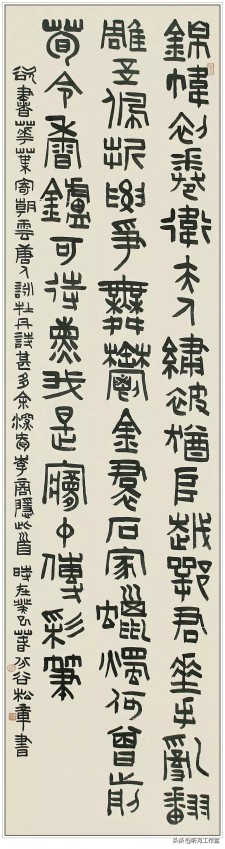 錦幃初卷衛夫人繡被猶堆越鄂君垂手亂翻
雕玉佩折腰爭舞鬱金裙石家蠟燭何曾剪
荀令香鑪可待熏我是夢中傳彩筆
欲書華葉寄朝雲唐人詠牡丹詩甚多余深愛李商隱此首 時在癸巳春 谷松章書
头条@听月工作室